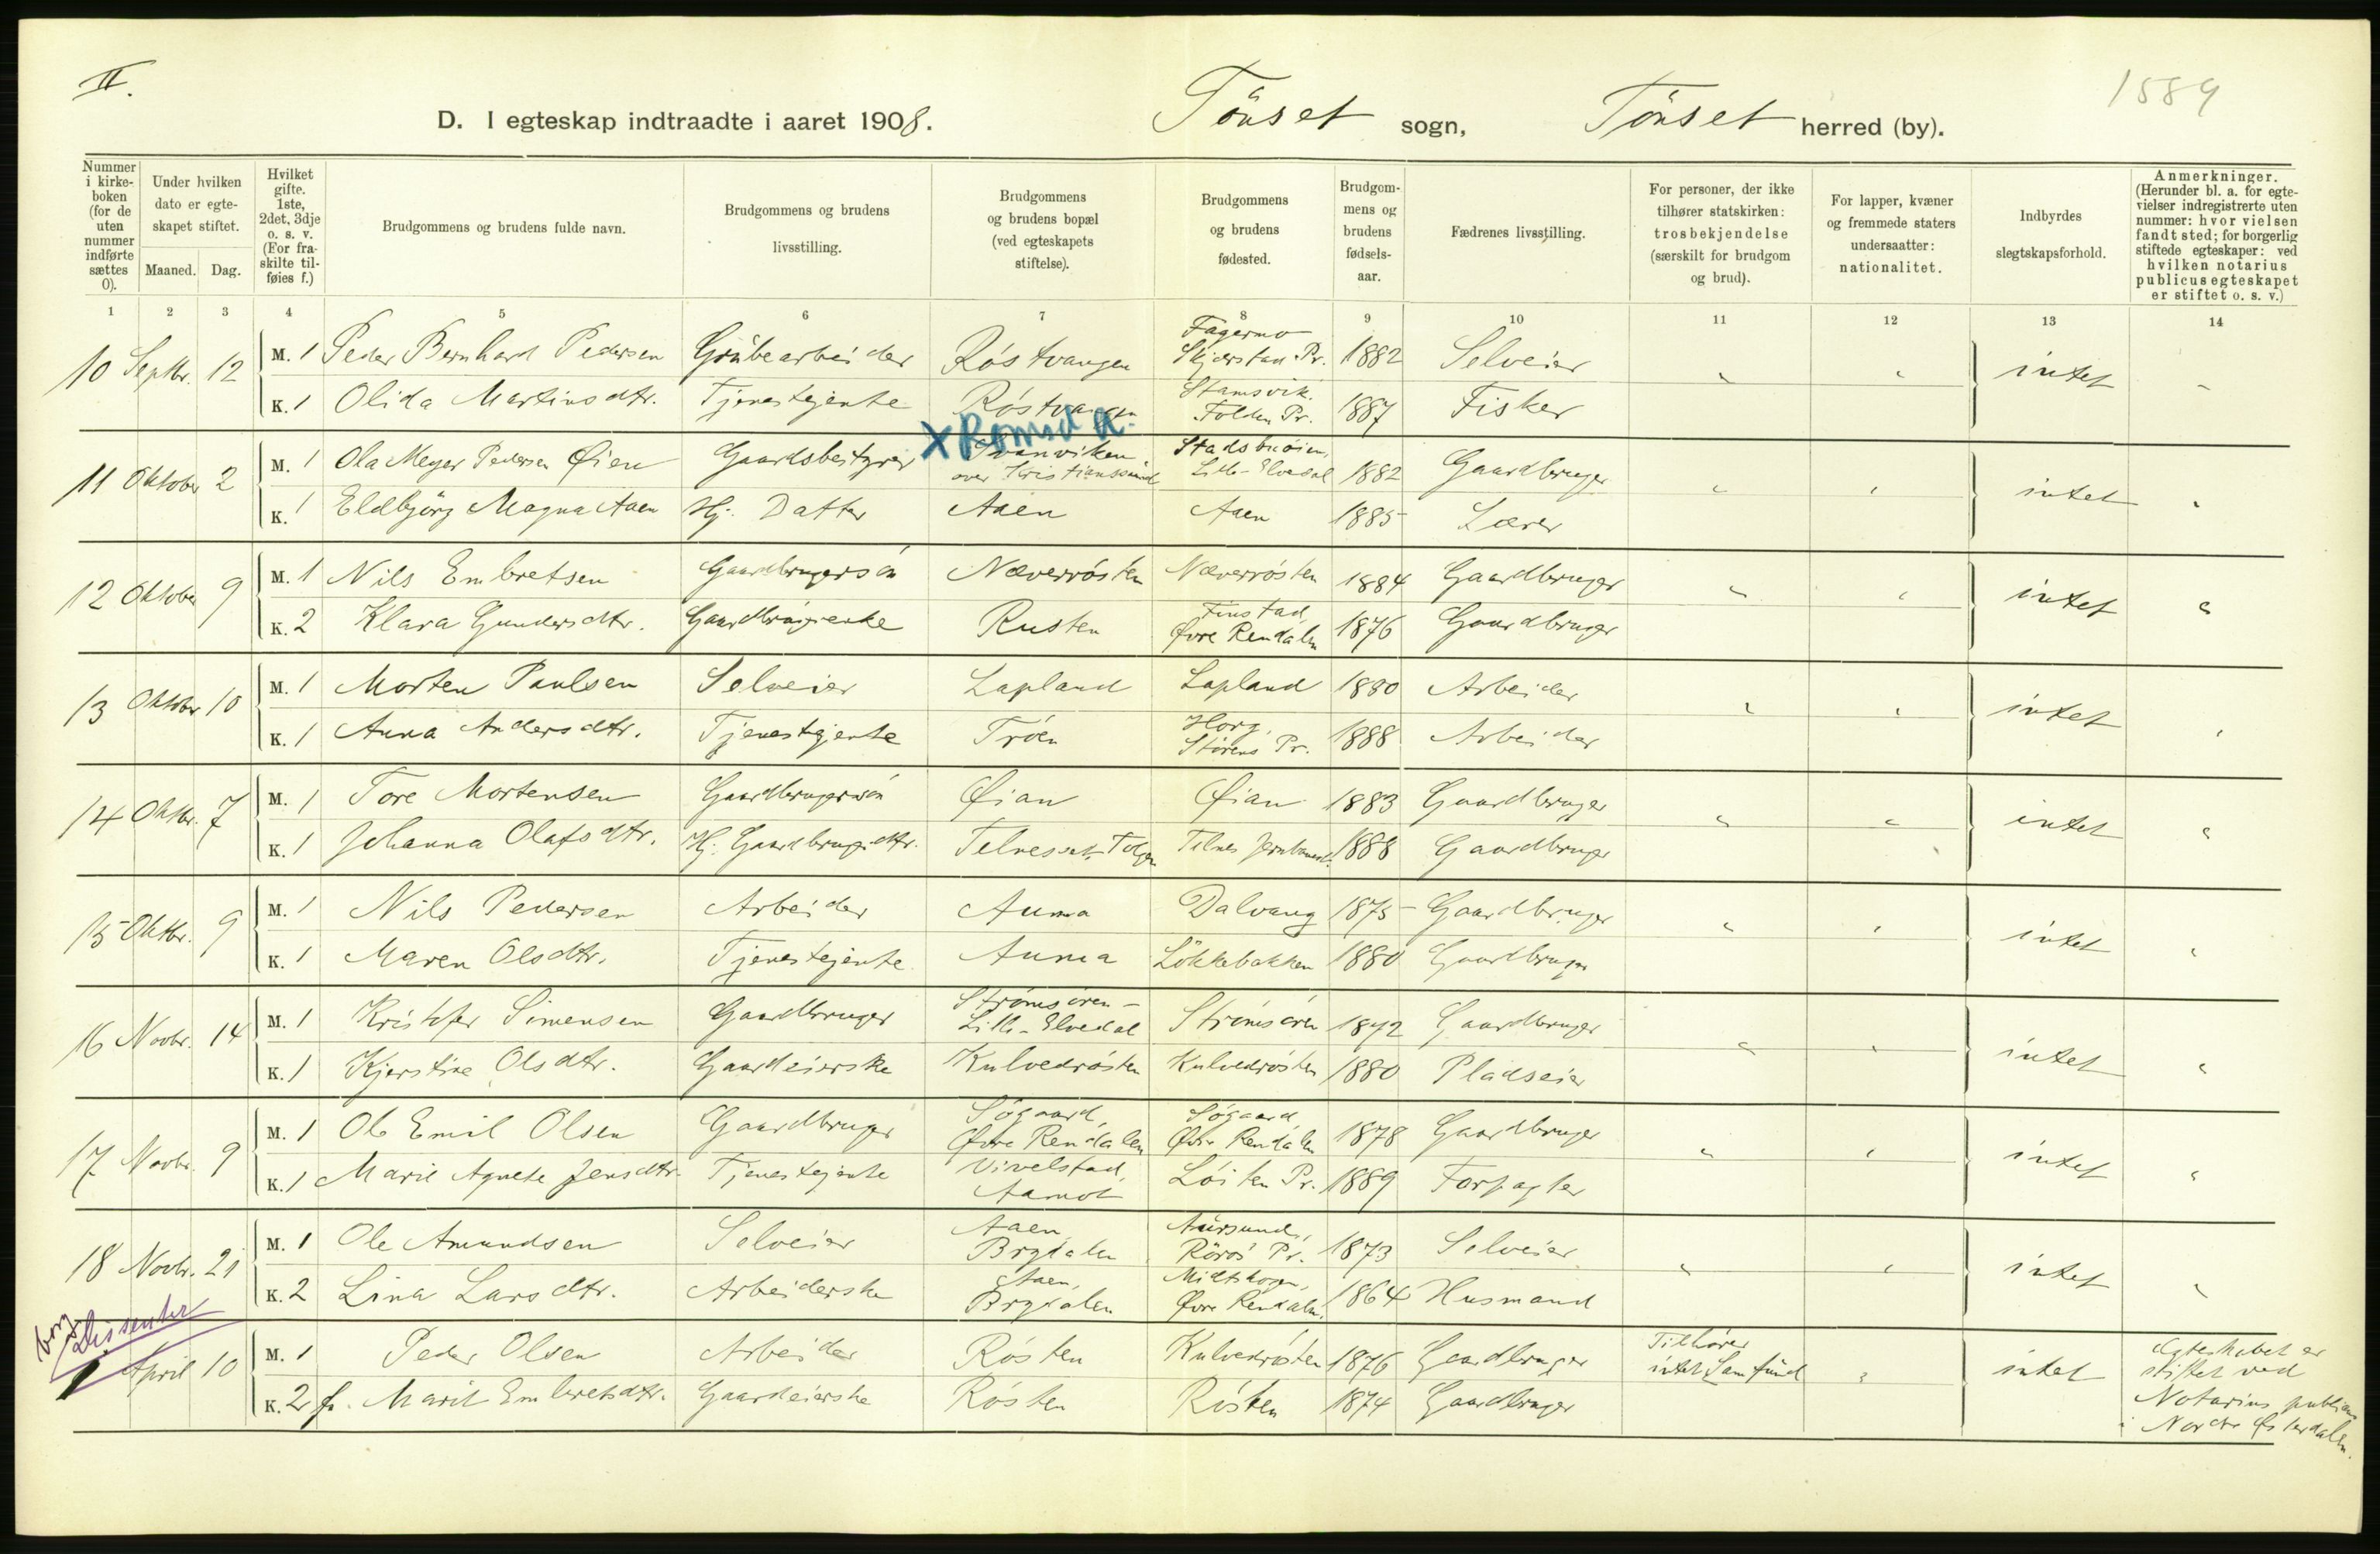 II.
1589
D. I egteskap indtraadte i aaret 1908. Tönset sogn, Tönset herred (by).
Nummer i kirkeboken (for de uten nummer indførte sættes 0).
Under hvilken dato er egteskapet stiftet.
Maaned. Dag.
Hvilket gifte. 1ste, 2det, 3dje o. s. v. (For fraskilte tilføies f.)
Brudgommens og brudens fulde navn.
Brudgommens og brudens livsstilling.
Brudgommens og brudens bopæl (ved egteskapets stiftelse).
Brudgommens og brudens fødested.
Brudgommens og brudens fødselsaar.
Fædrenes livsstilling.
For personer, der ikke tilhører statskirken: trosbekjendelse (særskilt for brudgom og brud).
For lapper, kvæner og fremmede staters undersaatter: nationalitet.
Indbyrdes slegtskapsforhold.
Anmerkninger. (Herunder bl. a. for egtevielser indregistrerte uten nummer: hvor vielsen fandt sted; for borgerlig stiftede egteskaper: ved hvilken notarius publicus egteskapet er stiftet o. s. v.)
1 2 3 4 5 6 7 8 9 10 11 12 13 14
10 Septbr. 12 M. 1 Peder Bernhard Pedersen Grübearbeider Röstvangen Fagermo Skjerstad Pr. 1882 Selveier " " intet "
K. 1 Olida Martinsdtr. Tjenestejente Röstvangen Stamsvik. Folden Pr. 1887 Fisker
X Romsd. A.
11 Oktober 2 M. 1 Ola Meyer Pedersen Øien Gaardsbestyrer Svanviken over Kristianssünd Stadsbuöien, Lille-Elvedal 1882 Gaardbruger " " intet "
K. 1 Eldbjörg Magna Aaen Hj. Datter Aaen Aaen 1885 Lærer
12 Oktober 9 M. 1 Nils Embretsen Gaardbrugersön Næverrösten Næverrösten 1884 Gaardbruger " " intet "
K. 2 Klara Gundersdtr. Gaardbrugerenke Rusten Finstad, Øvre Rendalen 1876 Gaardbruger
13 Oktober 10 M. 1 Morten Paulsen Selveier Lapland Lapland 1880 Arbeider " " intet "
K. 1 Anna Andersdtr. Tjenestejente Tröen Horg, Störens Pr. 1888 Arbeider
14 Oktbr. 7 M. 1 Tore Mortensen Gaardbrugersön Øian Øian 1883 Gaardbruger " " intet "
K. 1 Johanna Olafsdtr. Hj. Gaardbrugerdtr. Telneset Tolgen Telnes 1888 Gaardbruger
15 Oktbr. 9 M. 1 Nils Pedersen Arbeider Auma Dalvang 1875 Gaardbruger " " intet "
K. 1 Maren Olsdtr. Tjenestejente Auma Lökkebakken 1880 Gaardbruger
16 Novbr. 14 M. 1 Kristofer Simensen Gaardbruger Strömsören - Lille-Elvedal Strömsören 1872 Gaardbruger " " intet "
K. 1 Kjerstine Olsdtr. Gaardeierske Kulvedrösten Kulvedrösten 1880 Pladseier
17 Novbr. 9 M. 1 Ole Emil Olsen Gaardbruger Sögaard, Øvre Rendalen Sögaard, Øvre Rendalen 1878 Gaardbruger " " intet "
K. 1 Marie Agnete Jensdtr. Tjenestejente Vivelstad, Aamot Löiten Pr. 1889 Forpagter
18 Novbr. 21 M. 1 Ole Amundsen Selveier Aaen, Brydalen Aursund, Röros Pr. 1873 Selveier " " intet "
K. 2 Lina Larsdtr. Arbeiderske Aaen, Brydalen Midtskogen, Øvre Rendalen. 1864 Husmand
borg. Dissenter
1 April 10 M. 1 Peder Olsen Arbeider Rösten Kulvedrösten 1876 Gaardbruger Tilhører intet Samfünd " intet Egteskabet er stiftet ved Notarius publicus i Nordre Østerdalen.
K. 2 f. Marit Embretsdtr. Gaardeierske Rösten Rösten 1874 Gaardbruger